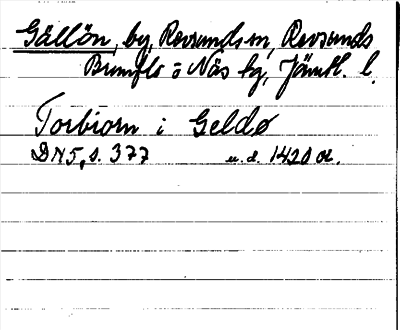 Gällön, by, Revsunds sn, Revsunds
Brunflo o Näs tg, Jämtl. l.
Torbiorn i Geldø
DN5, s. 377 u.d. 1420 or.